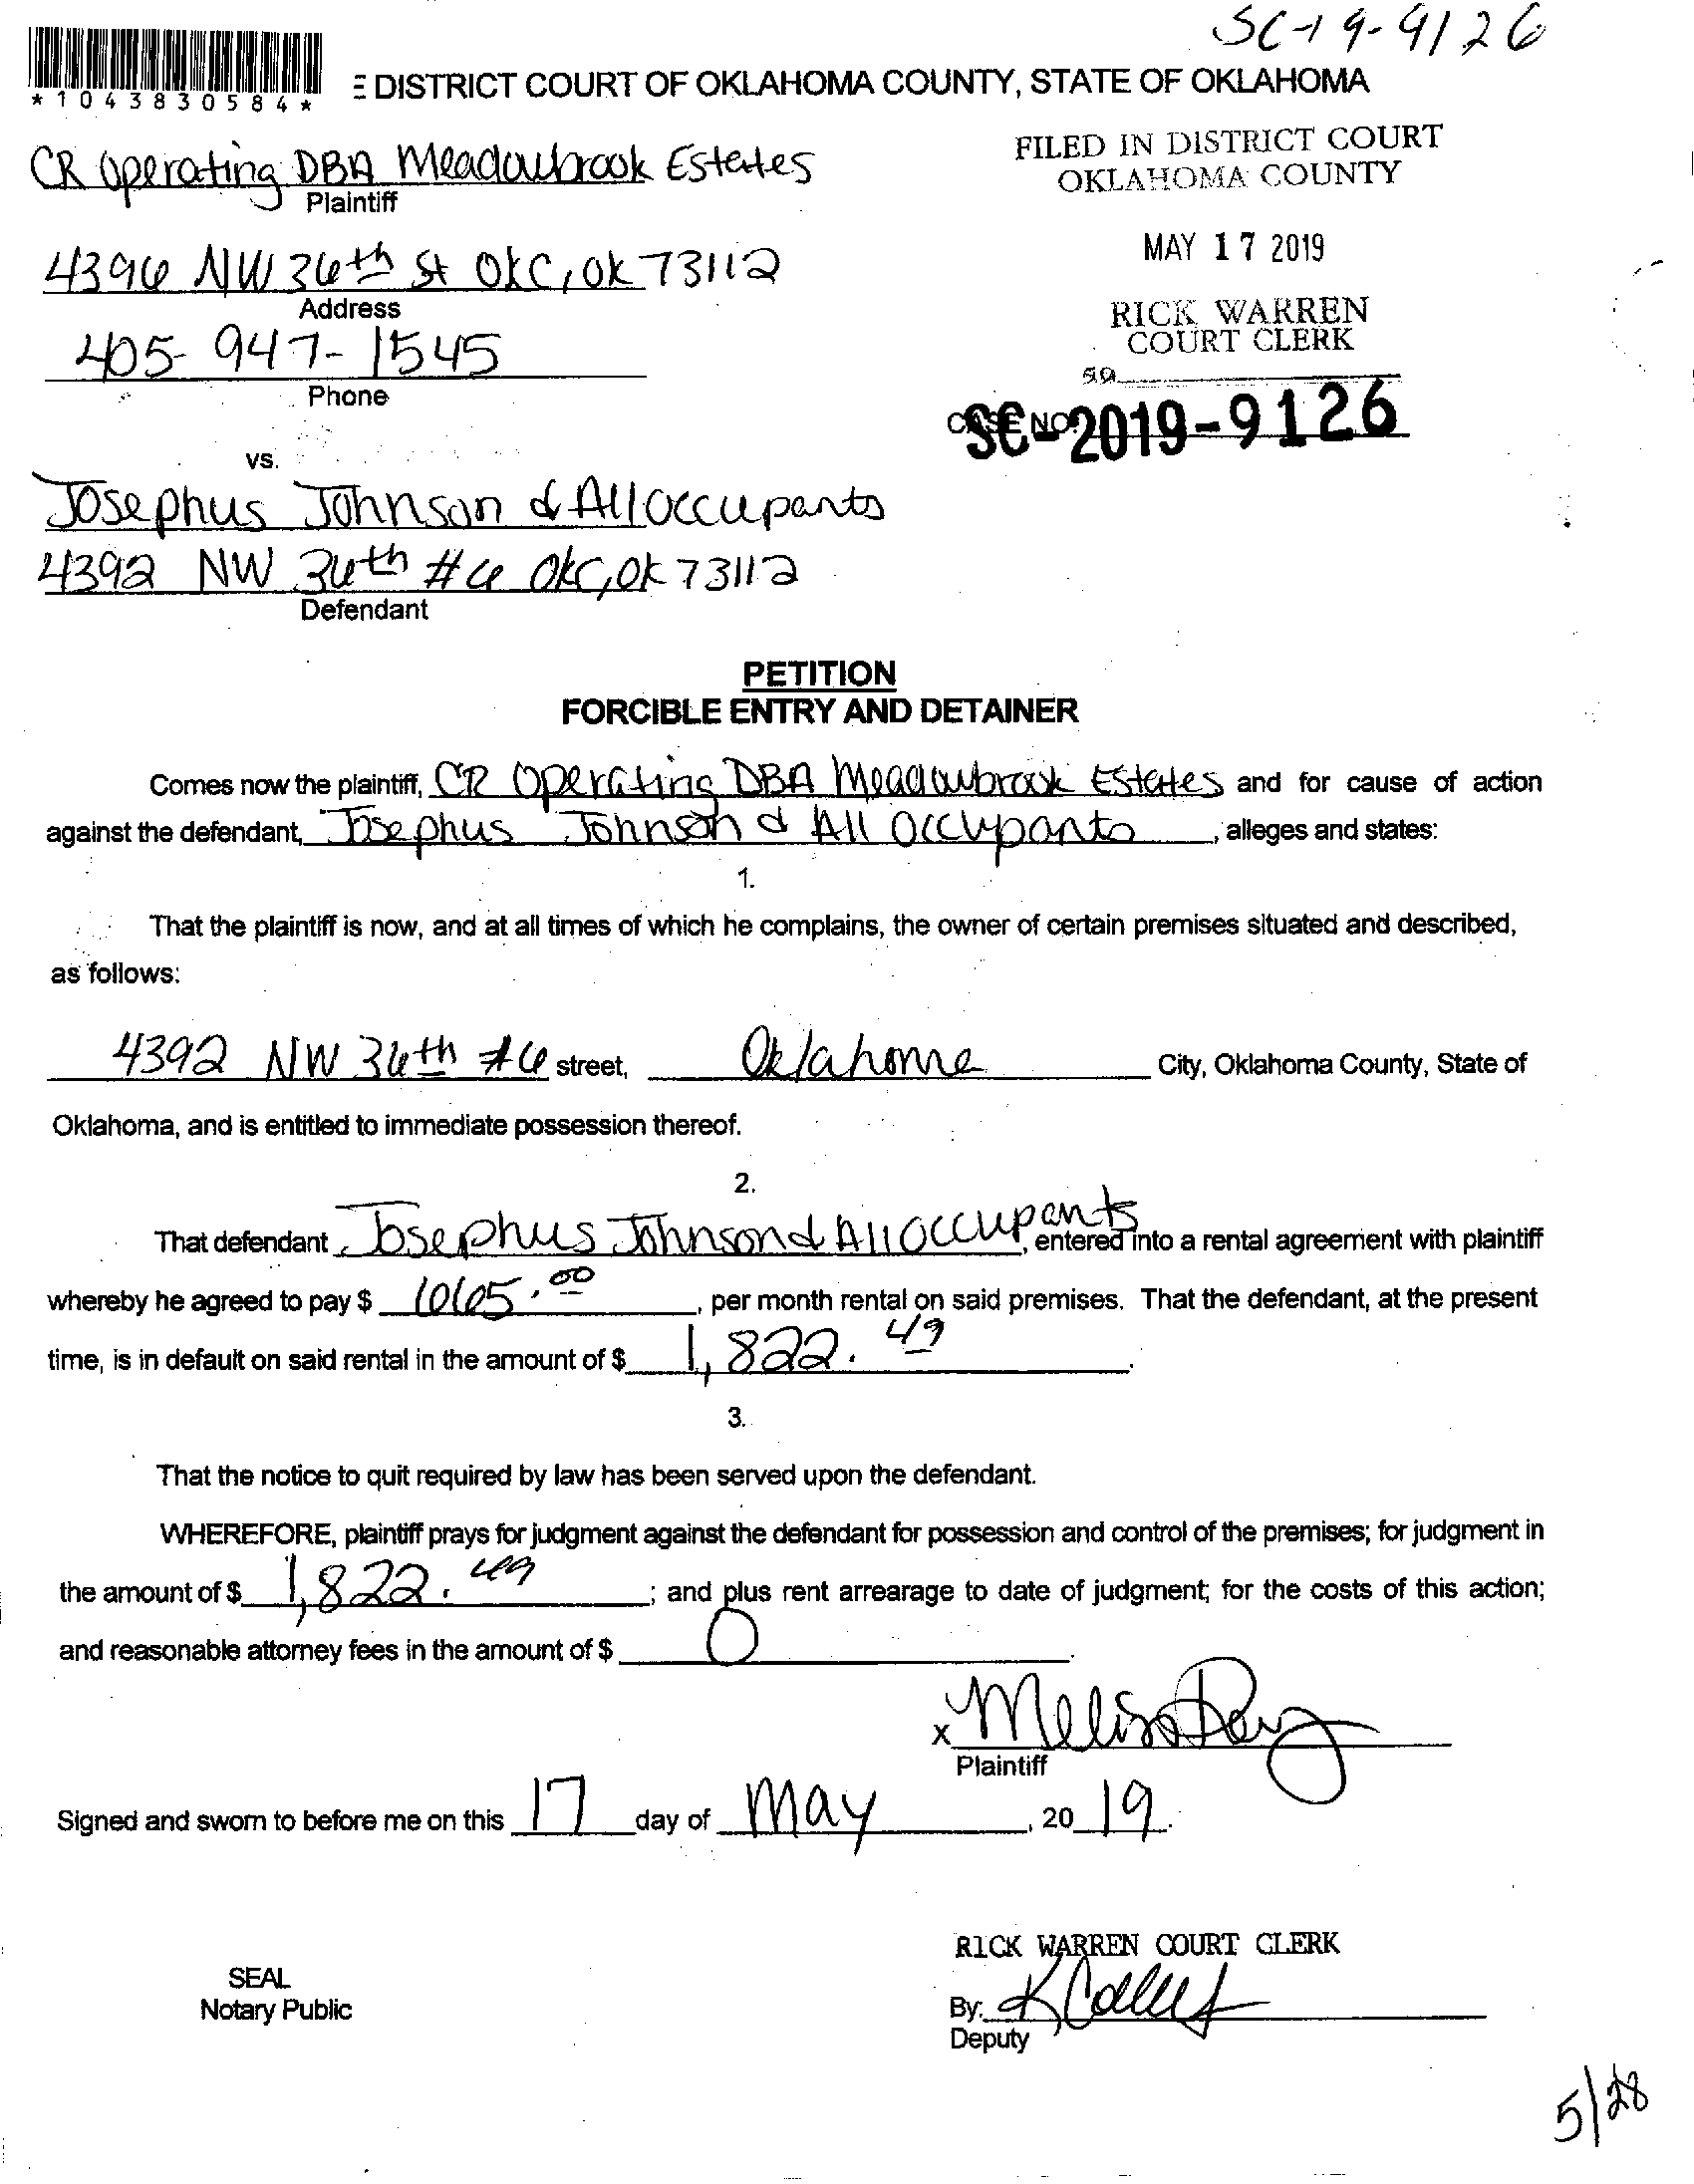 SC-19-9126
*1043830584*
E DISTRICT COURT OF OKLAHOMA COUNTY, STATE OF OKLAHOMA
CR Operating DBA Meadowbrook Estates
Plaintiff
FILED IN DISTRICT COURT
OKLAHOMA COUNTY
4396 NW 36th St OKC, OK 73112
Address
MAY 17 2019
405-947-1545
Phone
RICK WARREN
COURT CLERK
CASE NO.
SC-2019-9126
vs.
Josephus Johnson & All Occupants
4392 NW 36th #6 OKC, OK 73112
Defendant
PETITION
FORCIBLE ENTRY AND DETAINER
Comes now the plaintiff, CR Operating DBA Meadowbrook Estates and for cause of action
against the defendant, Josephus Johnson & All Occupants, alleges and states:
1.
That the plaintiff is now, and at all times of which he complains, the owner of certain premises situated and described,
as follows:
4392 NW 36th #6 street, Oklahoma City, Oklahoma County, State of
Oklahoma, and is entitled to immediate possession thereof.
2.
That defendant Josephus Johnson & All Occupants, entered into a rental agreement with plaintiff
whereby he agreed to pay $ 665.00, per month rental on said premises. That the defendant, at the present
time, is in default on said rental in the amount of $ 1,822.49.
3.
That the notice to quit required by law has been served upon the defendant.
WHEREFORE, plaintiff prays for judgment against the defendant for possession and control of the premises; for judgment in
the amount of $ 1,822.49; and plus rent arrearage to date of judgment; for the costs of this action;
and reasonable attorney fees in the amount of $ 0.
x Melissa
Plaintiff
Signed and sworn to before me on this 17 day of May, 20 19.
RICK WARREN COURT CLERK
SEAL
Notary Public
By:
Deputy
5/28